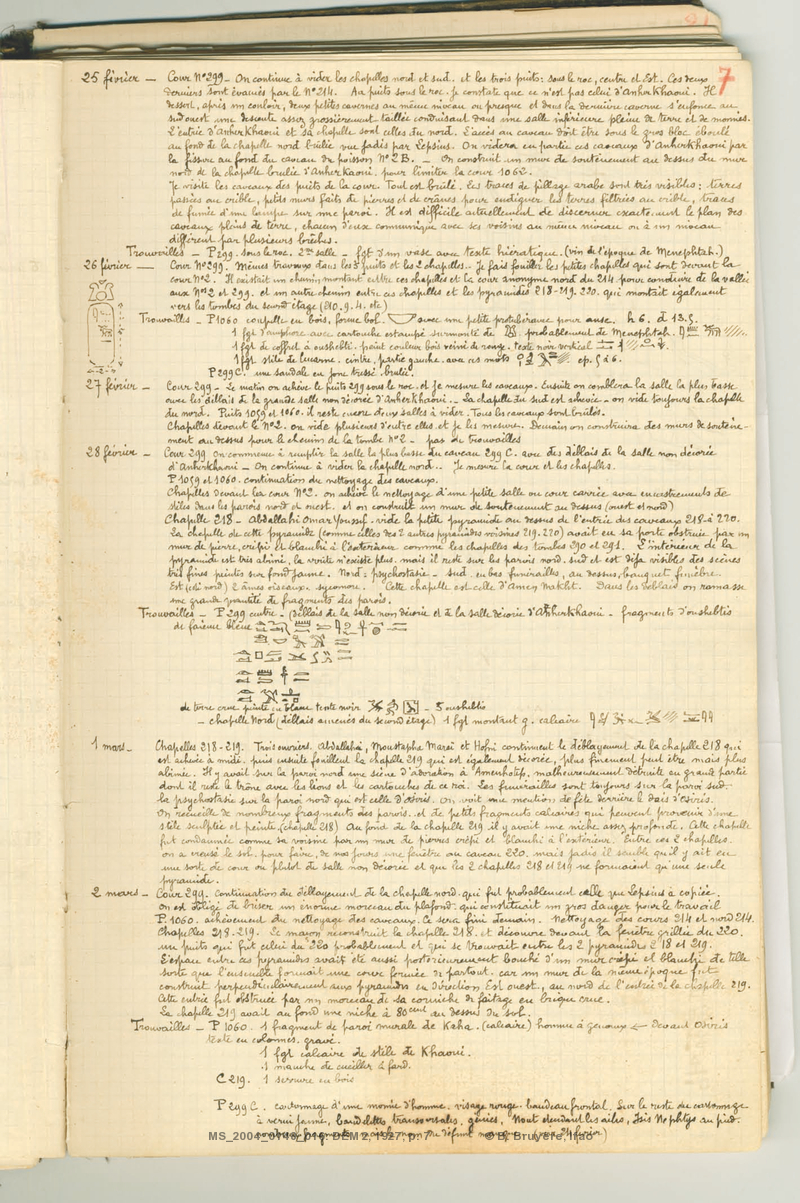 7
25 février — Cour N° 299 - On continue à vider les chapelles nord et sud. et les trois puits: sous le roc, centre et Est. Ces deux
derniers sont évacués par le N° 214. Au puits sous le roc. je constate que ce n'est pas celui d'Anherkhaoui. Il
dessert, après un couloir, deux petites cavernes au même niveau ou presque et dans la dernière caverne s'enfonce au
sud ouest une descente assez grossièrement taillée conduisant dans une salle inférieure pleine de terre et de momies.
L'entrée d'Anherkhaoui et sa chapelle sont celles du nord. L'accès au caveau doit être sous le gros bloc éboulé
au fond de la chapelle nord brûlée vue jadis par Lepsius. On videra en partie ces caveaux d'Anherkhaoui par
la fissure au fond du caveau du poisson N° 2 B. - On construit un mur de soutènement au dessus du mur
nord de la chapelle brulée d'Anherkaoui. pour limiter la cour 1062.
Je visite les caveaux des puits de la cour. Tout est brûlé. les traces de pillage arabe sont très visibles; terres
passées au crible, petits murs faits de pierres et de crânes pour endiguer les terres filtrées au crible, traces
de fumée d'une lampe sur une paroi. Il est difficile actuellement de discerner exactement le plan des
caveaux pleins de terre, chacun d'eux communique avec ses voisins au même niveau ou à un niveau
différent par plusieurs brèches.
Trouvailles - P 299. sous le roc. 2me salle - fgt d'un vase avec texte hiératique. (vin de l'époque de Menephtah.)
26 février — Cour N° 299. Mêmes travaux dans les 3 puits et les 2 chapelles. Je fais fouiller les petites chapelles qui sont devant la
cour N° 2. Il existait un chemin montant entre ces chapelles et la cour anonyme nord du 214 pour conduire de la vallée
aux N° 2 et 299. et un autre chemin entre ces chapelles et les pyramides 218-219. 220. qui montait également
vers les tombes du second étage (210. 9. 4. etc)
Trouvailles - P 1060 coupelle en bois, forme bol avec une petite protubérance pour anse. h 6. d 13.5.
1 fgt d'amphore avec cartouche estampé surmonté de probablement de Menephtah.
1 fgt de coffret à oushebti. peint couleur bois veiné de rouge. texte noir vertical
1 fgt stèle de lucarne. cintre, partie gauche. avec ces mots ep. 5 à 6.
P 299 C. une sandale en jonc tressé. brulée.
27 février — Cour 299 - Le matin on achève le puits 299 sous le roc. et je mesure les caveaux. Ensuite on comblera la salle la plus basse
avec les déblais de la grande salle non décorée d'Anherkhaoui. - La chapelle du sud est achevée - on vide toujours la chapelle
du nord. Puits 1059 et 1060. il reste encore deux salles à vider. Tous les caveaux sont brûlés.
Chapelles devant le N° 2. on vide plusieurs d'entre elles. et je les mesure. Demain on construira des murs de soutène-
ment au dessus pour le chemin de la tombe N° 2 - pas de trouvailles
28 février — Cour 299 On commence à remplir la salle la plus basse du caveau 299 C. avec des déblais de la salle non décorée
d'Anherkhaoui - On continue à vider la chapelle nord. Je mesure la cour et les chapelles.
P 1059 et 1060. continuation du nettoyage des caveaux.
Chapelles devant la cour N° 2. on achève le nettoyage d'une petite salle ou cour carrée avec encastrements de
stèles dans les parois nord et ouest. et on construit un mur de soutènement au dessus (ouest et nord)
Chapelle 218 - Abdallahi Omar Youssif. vide la petite pyramide au dessus de l'entrée des caveaux 218 à 220.
La chapelle de cette pyramide (comme celles des 2 autres pyramides voisines 219. 220) avait eu sa porte obstruée par un
mur de pierre, crépi et blanchi à l'extérieur comme les chapelles des tombes 290 et 291. L'intérieur de la
pyramide est très abîmé, la voûte n'existe plus. mais il reste sur les parois nord. sud et est déjà visibles des scènes
très fines peintes sur fond jaune. Nord: psychostasie - sud. en bas funérailles, au dessus, bouquet funèbre
Est (côté nord) 2 âmes oiseaux, sycomore. Cette chapelle est celle d'Amen Nakht. Dans les déblais on ramasse
une grande quantité de fragments des parois.
Trouvailles - P 299 centre - (déblais de la salle non décorée et de la salle décorée d'Anherkhaoui - fragments d'oushebtis
de faïence bleue
de terre crue peinte en blanc texte noir - 5 oushebtis
- chapelle Nord (déblais amenés du second étage) 1 fgt montant g. calcaire
1 mars - Chapelles 218-219. Trois ouvriers. Abdallahi, Moustapha Mareï et Hofni continuent le déblayement de la chapelle 218 qui
est achevée à midi. puis ensuite fouillent la chapelle 219 qui est également décorée, plus finement peut être mais plus
abîmée. Il y avait sur la paroi nord une scène d'adoration à Amenhotep, malheureusement détruite en grande partie
dont il reste le trône avec les lions et les cartouches de ce roi. Les funérailles sont toujours sur la paroi sud.
la psychostasie sur la paroi nord qui est celle d'Osiris. On voit une mention de fête derrière le dais d'Osiris.
On recueille de nombreux fragments des parois. et de petits fragments calcaires qui peuvent provenir d'une
stèle sculptée et peinte (chapelle 218) Au fond de la chapelle 219 il y avait une niche assez profonde. Cette chapelle
fut condamnée comme sa voisine par un mur de pierres crépi et blanchi à l'extérieur. Entre ces 2 chapelles
on a creusé le sol. pour faire, de nos jours une fenêtre au caveau 220. mais jadis il semble qu'il y ait eu
une sorte de cour ou plutôt de salle non décorée et que les 2 chapelles 218 et 219 ne formaient qu'une seule
pyramide.
2 mars - Cour 299. continuation du déblayement de la chapelle nord. qui fut probablement celle que Lepsius a copiée.
On est obligé de briser un énorme morceau du plafond. qui constituait un gros danger pour le travail
P. 1060. achèvement du nettoyage des caveaux. Ce sera fini demain. Nettoyage des cours 214 et nord 214.
Chapelles 218-219. Le maçon reconstruit la chapelle 218. et découvre devant la fenêtre grillée du 220.
un puits qui fut celui du 220 probablement et qui se trouvait entre les 2 pyramides 218 et 219.
L'espace entre ces pyramides avait été aussi postérieurement bouché d'un mur crépi et blanchi de telle
sorte que l'ensemble formait une cour fermée de partout. car un mur de la même époque fut
construit perpendiculairement aux pyramides en direction Est ouest, au nord de l'entrée de la chapelle 219.
Cette entrée fut obstruée par un morceau de sa corniche de faîtage en brique crue.
La chapelle 219 avait au fond une niche à 80 cent au dessus du sol.
Trouvailles - P 1060. 1 fragment de paroi murale de Kaha. (calcaire) homme à genoux devant Osiris
texte en colonnes. gravé.
1 fgt calcaire de stèle de Khaoui.
1 manche de cuiller à fard.
C 219. 1 serrure en bois
P 299 C. cartonnage d'une momie d'homme. visage rouge. bandeau frontal. Sur le reste du cartonnage
à verni jaune, bandelettes transversales, génies, Nout étendant les ailes, Isis Nephtys au pied.
MS_2004_0146_016 DEM 2, 1927, p. 7 © B. Bruyère, Ifao